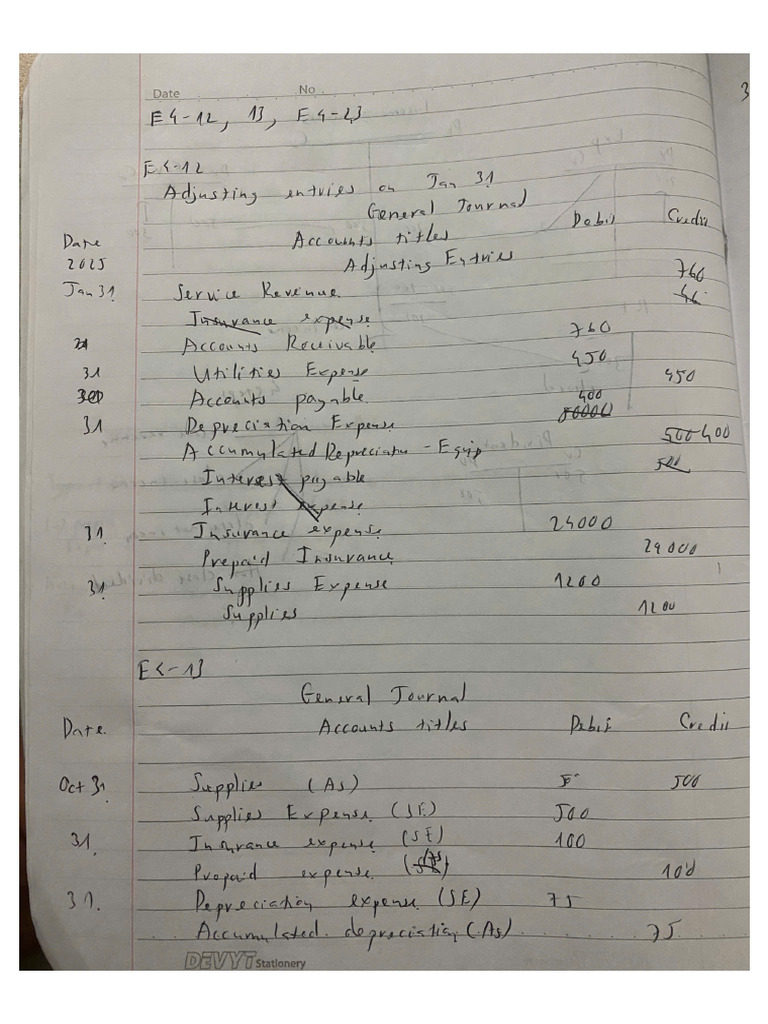 Date No
E4-12, 13, E4-23
E4-12
Adjusting entries on Jan 31
General Journal
Date Accounts titles Debit Credit
2025 Adjusting Entries
Jan 31 Service Revenue 760
Insurance expense
Accounts Receivable 760
31 Utilities Expense 450
Accounts payable 450
31 Depreciation Expense 400
Accumulated Depreciation - Equip 400
Interest payable 500
Interest expense
31 Insurance expense 24000
Prepaid Insurance 24000
31 Supplies Expense 1200
Supplies 1200
E4-13
General Journal
Date Accounts titles Debit Credit
Oct 31 Supplies (As) 500
Supplies Expense (SE) 500
31. Insurance expense (SE) 100
Prepaid expense (As) 100
31. Depreciation expense (SE) 75
Accumulated depreciation (As) 75
DEVYT Stationery
3